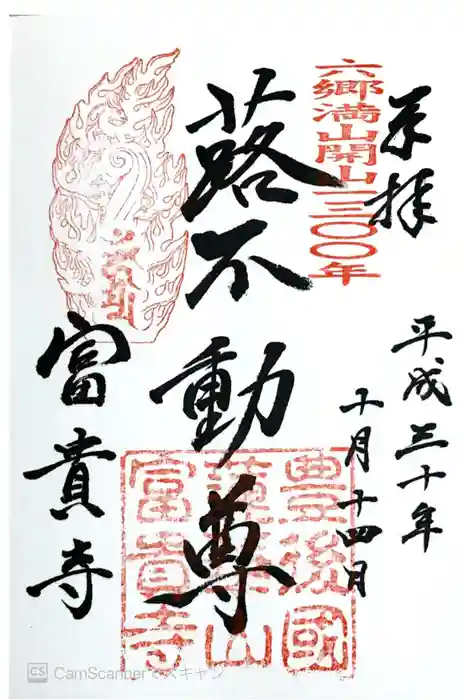 奉拝
平成三十年
十月十四日
六郷満山開山一三〇〇年
蕗不動尊
富貴寺
豊後國
蓮華山
富貴寺
CamScannerでスキャン